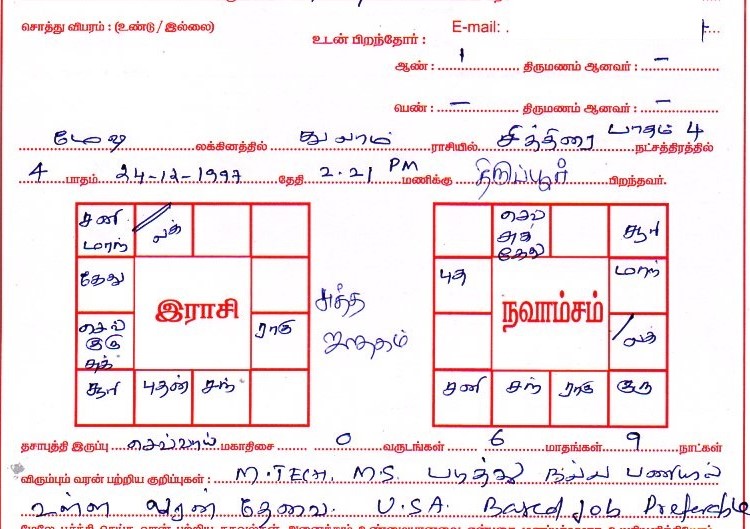 சொத்து விபரம் : (உண்டு / இல்லை)
E-mail: .
உடன் பிறந்தோர் :
ஆண் : 1 திருமணம் ஆனவர் : –
பெண் : – திருமணம் ஆனவர் : –
மேஷ லக்கினத்தில் துலாம் ராசியில் சித்திரை பாதம் 4 நட்சத்திரத்தில்
4 பாதம் 24-12-1997 தேதி 2.21 PM மணிக்கு திருப்பூர் பிறந்தவர்.
சனி மாந் லக்
கேது
செவ் குரு சுக்
ராகு
சூரி புதன் சந்
இராசி
சுத்த ஜாதகம்
செவ் சுக் கேது சூரி
புத மாந்
லக்
சனி சந் ராகு குரு
நவாம்சம்
தசாபுத்தி இருப்பு செவ்வாய் மகாதிசை 0 வருடங்கள் 6 மாதங்கள் 9 நாட்கள்
விரும்பும் வரன் பற்றிய குறிப்புகள் : M.TECH. M.S. படித்து நல்ல பணியில்
உள்ள வரன் தேவை. U.S.A. Based Job Preferable